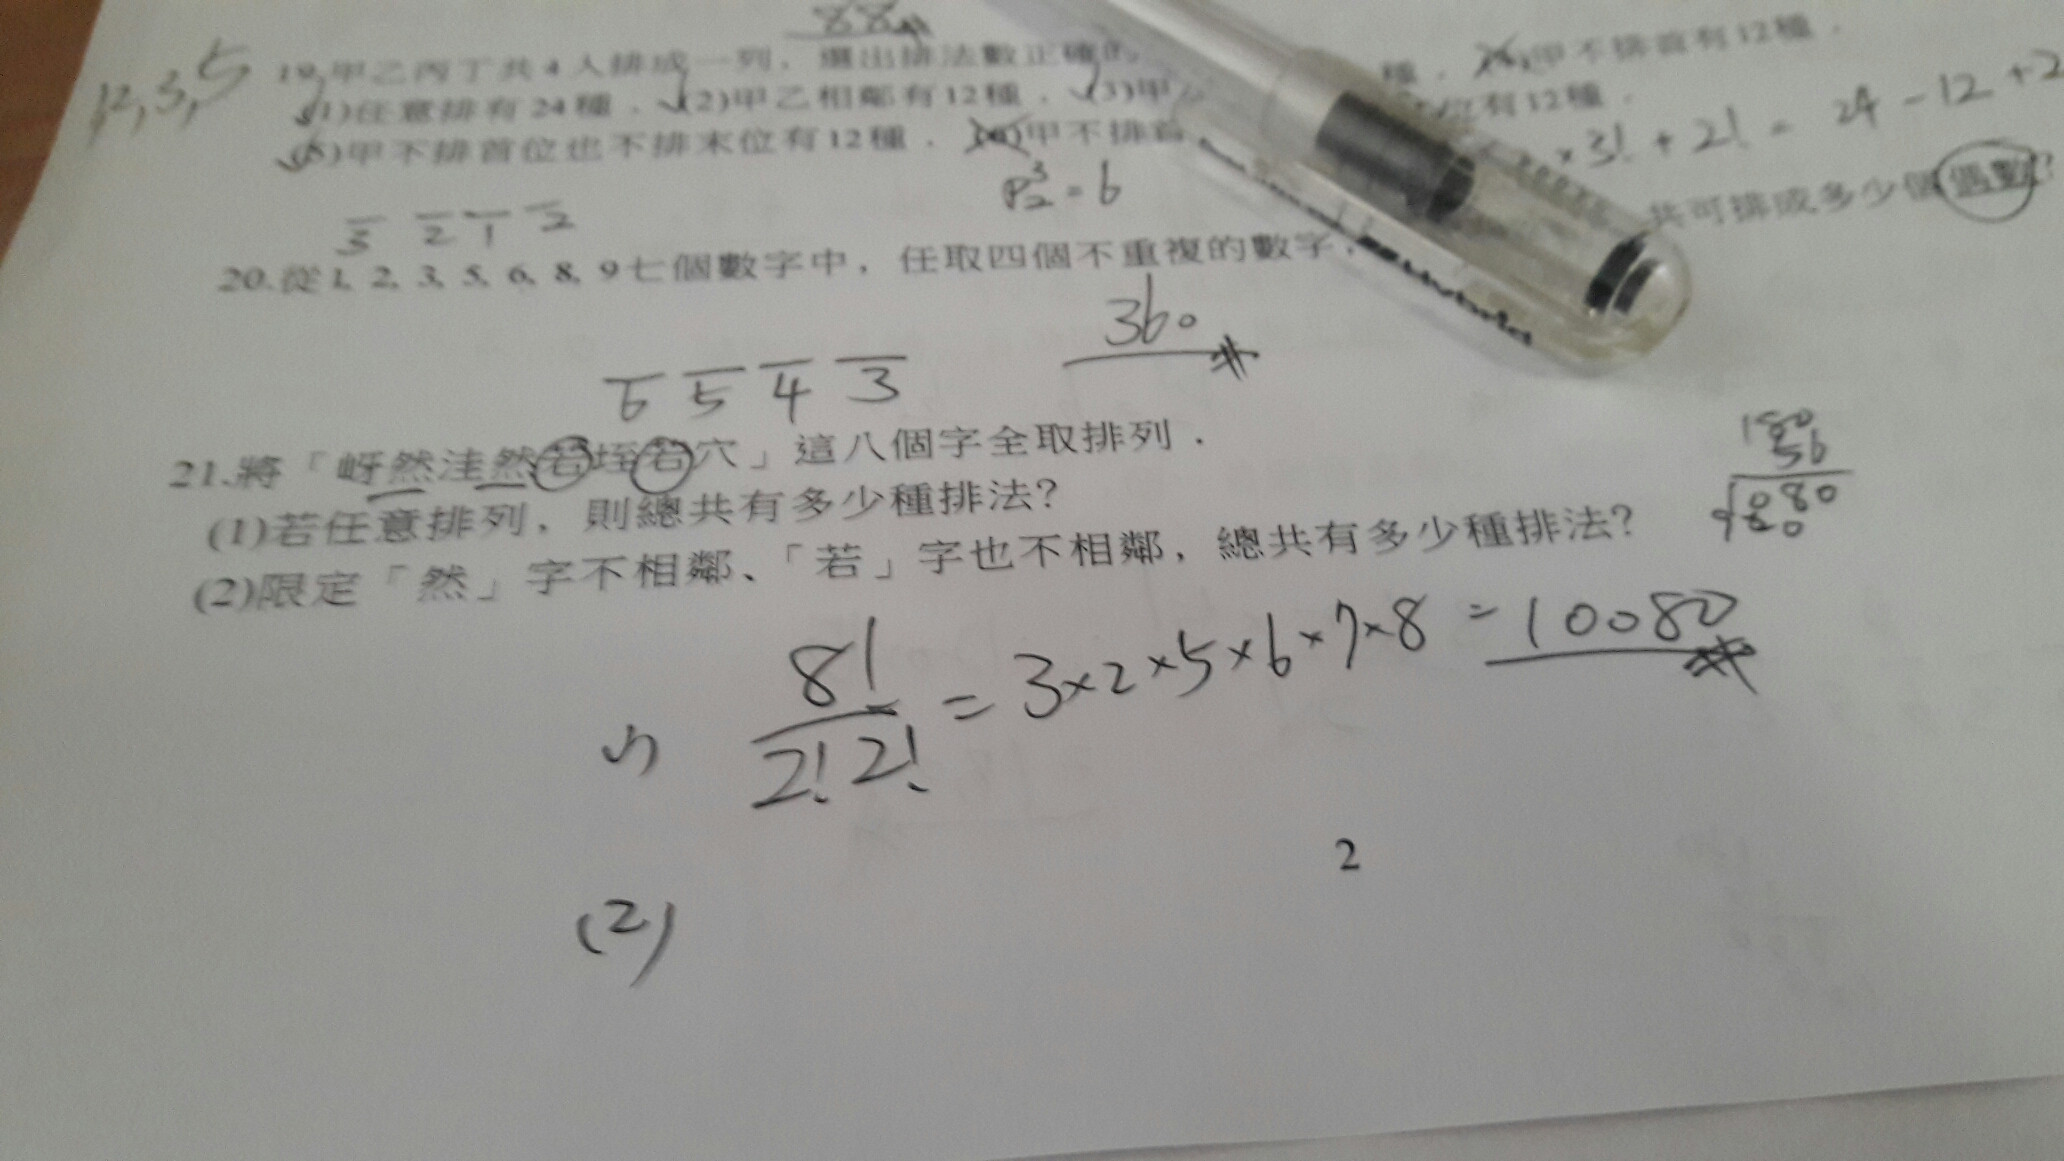 88
1,2,3,5
19.甲乙丙丁共4人排成一列，選出排法數正確的
種．
甲不排首有12種．
(1)任意排有24種．(2)甲乙相鄰有12種．(3)甲
位有12種．
(5)甲不排首位也不排末位有12種．
甲不排首
×3! + 2! = 24 - 12 + 2
P³₂ = 6
3 2 1 2
20.從1, 2, 3, 5, 6, 8, 9七個數字中，任取四個不重複的數字，
共可排成多少個偶數?
360
6 5 4 3
21.將「岈然洼然若垤若穴」這八個字全取排列．
(1)若任意排列，則總共有多少種排法?
(2)限定「然」字不相鄰、「若」字也不相鄰，總共有多少種排法?
180
56
080
(1) 8!/2!2! = 3×2×5×6×7×8 = 10080
2
(2)